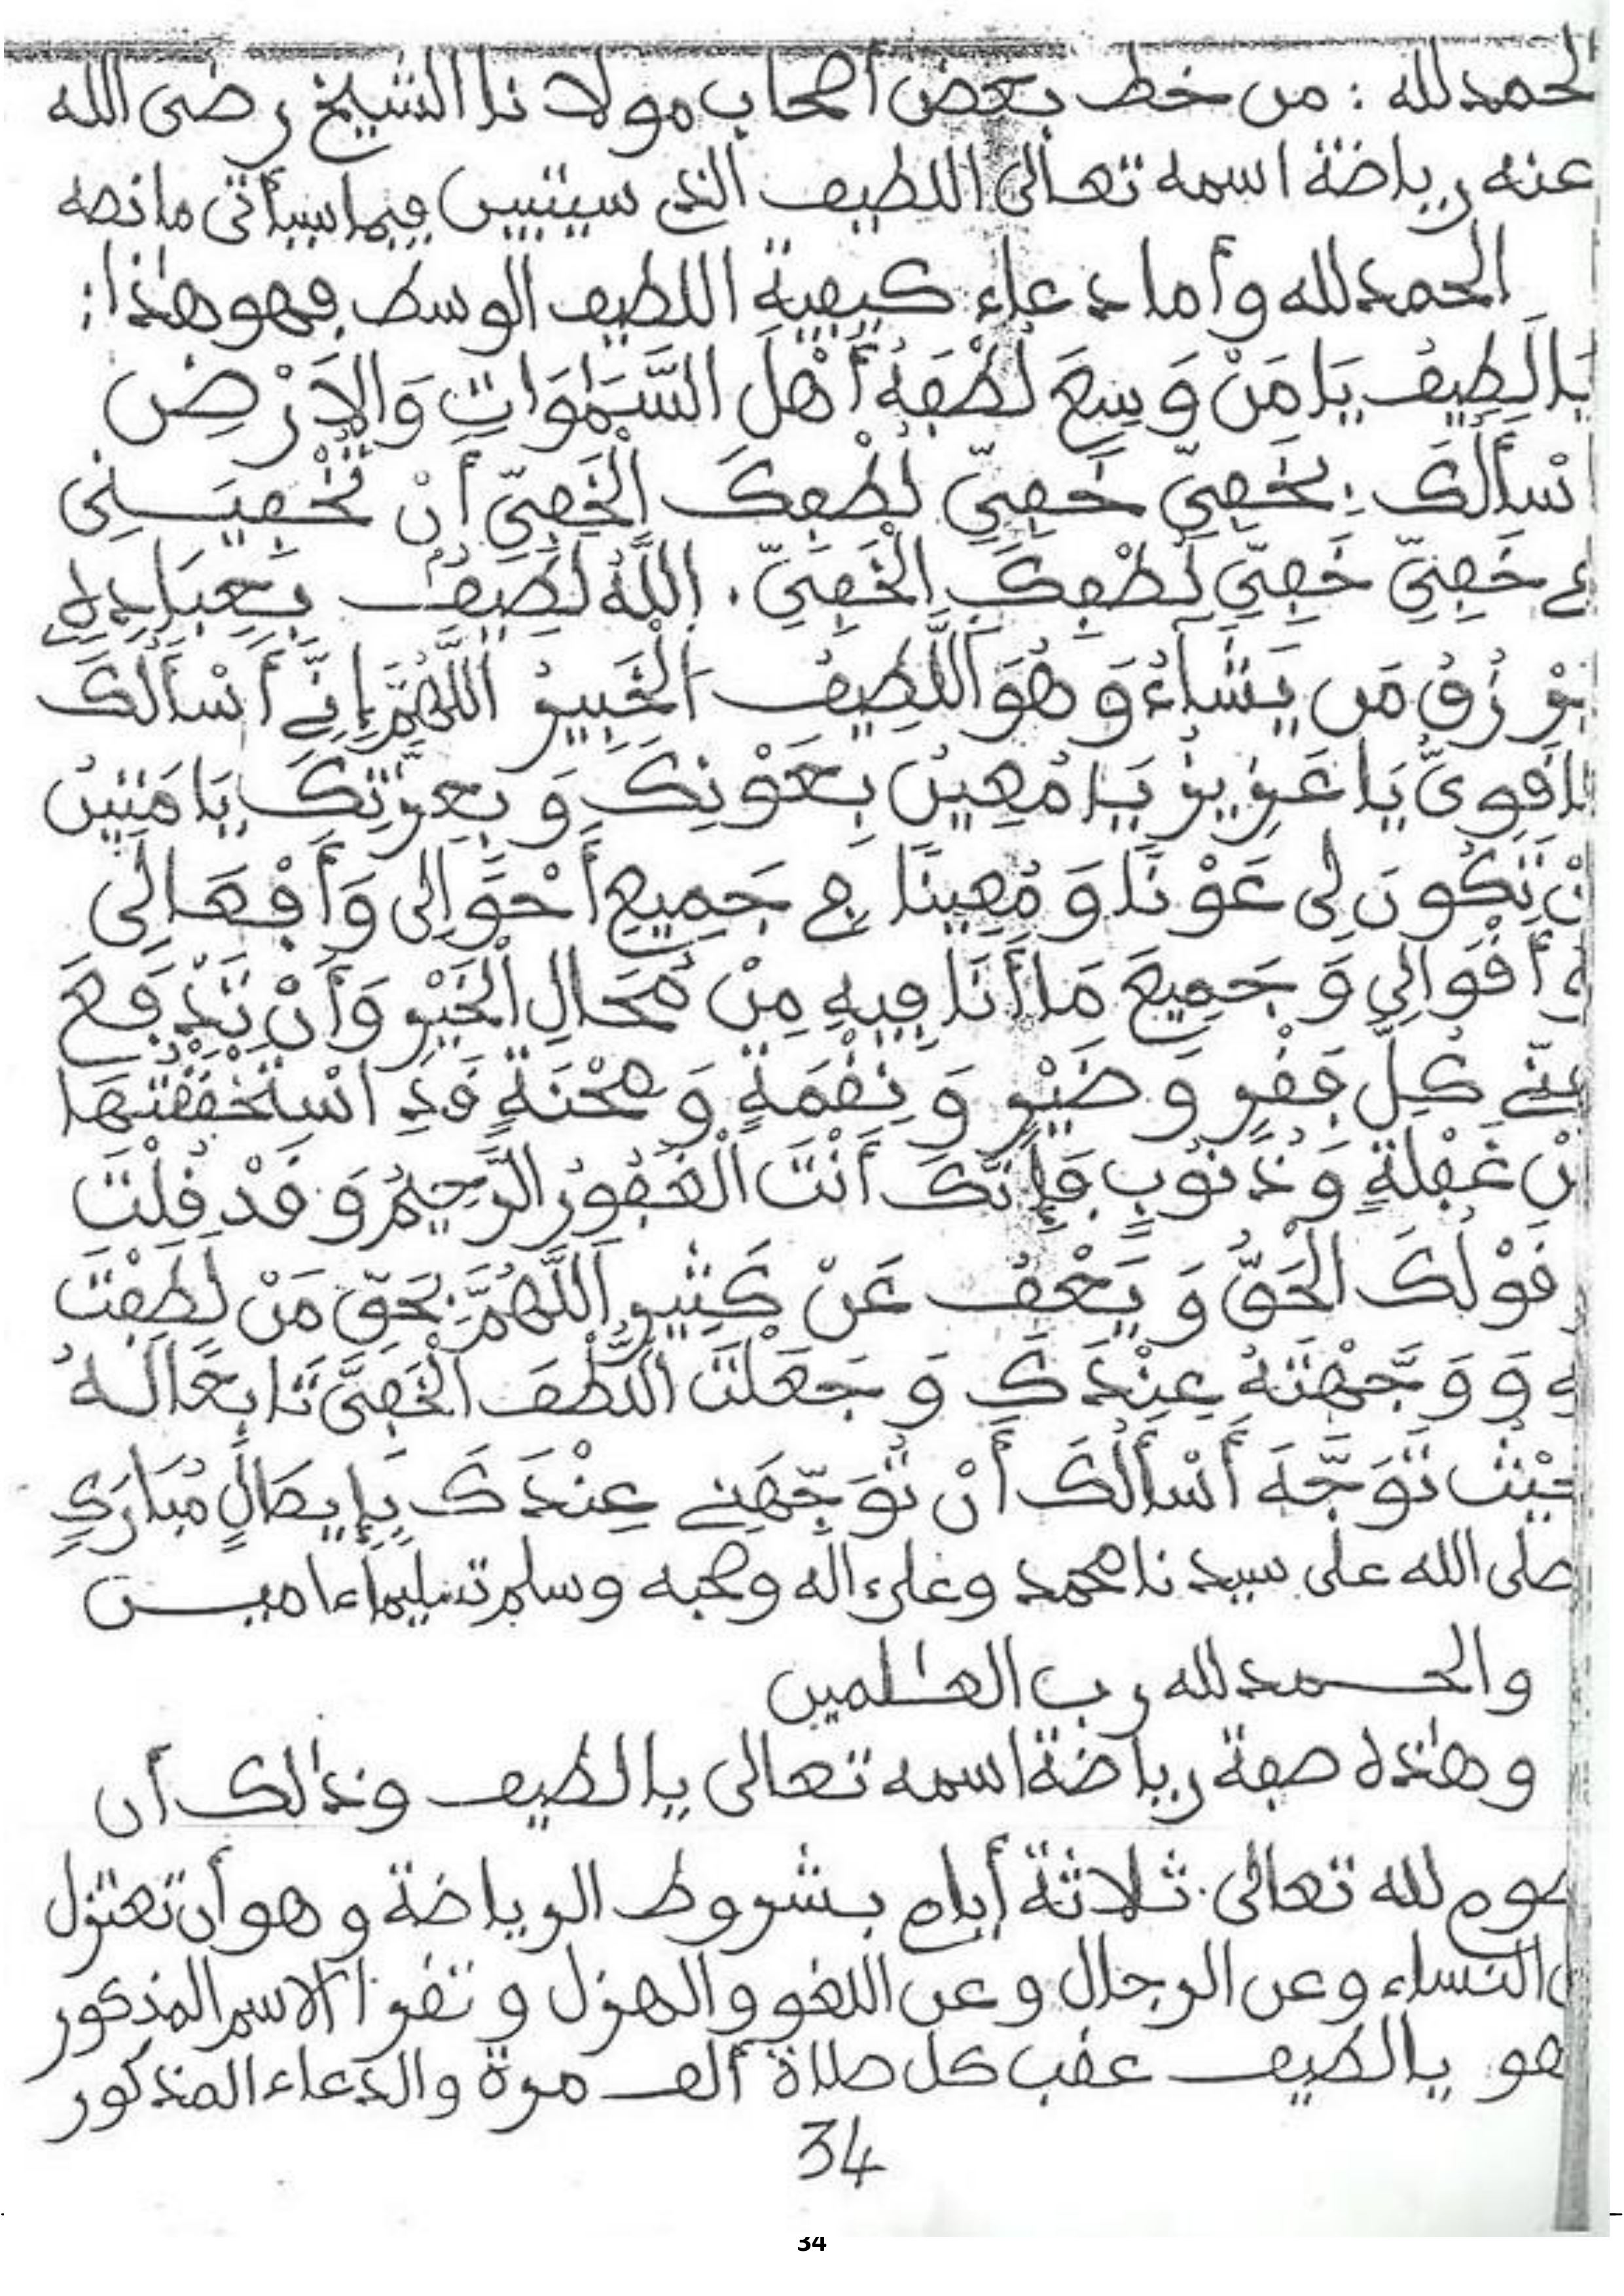 الحمد لله : من خط بعض أصحاب مولانا الشيخ رضى الله
عنه رياضة اسمه تعالى اللطيف الذي سيتبين فيما سيأتى ما نصه
الحمد لله وأما دعاء كيفية اللطيف الوسط فهو هذا:
يَا لَطِيفُ يَا مَنْ وَسِعَ لُطْفُهُ أَهْلَ السَّمَٰوَاتِ وَالاَرْضِ
أسْأَلُكَ بِخَفِيِّ خَفِيِّ لُطْفِكَ الْخَفِيِّ أَنْ تُخْفِيَنِى
فِي خَفِيِّ خَفِيِّ لُطْفِكَ الْخَفِيِّ . اللَّهُ لَطِيفٌ بِعِبَادِهِ
يَرْزُقُ مَن يَشَاءُ وَهُوَ اللَّطِيفُ الْخَبِيرُ اللَّهُمَّ إِنِّي أَسْأَلُكَ
يَا قَوِىُّ يَا عَزِيزُ يَا مُعِينُ بِعَوْنِكَ وَ بِعِزَّتِكَ يَا مَتِينُ
أنْ تَكُونَ لِى عَوْنًا وَ مُعِينًا فِي جَمِيعِ أَحْوَالِى وَأَفْعَالِى
وَ أَقْوَالِي وَ جَمِيعَ مَا أَنَا فِيهِ مِنْ مَحَالِ الْخَيْرِ وَأَنْ تَدْفَعَ
عَنِّي كُلَّ فَقْرٍ وَ ضَيْرٍ وَ نِقْمَةٍ وَ مِحْنَةٍ قَدِ اسْتَحْقَقْتُهَا
مِنْ غَفْلَةٍ وَ ذُنُوبٍ فَإِنَّكَ أَنْتَ الْغَفُورُ الرَّحِيمُ وَ قَدْ قُلْتَ
وَ قَوْلُكَ الْحَقُّ وَ يَعْفُ عَنْ كَثِيرٍ اَللَّهُمَّ بِحَقِّ مَنْ لَطَفْتَ
بِهِ وَ وَجَّهْتَهُ عِنْدَكَ وَ جَعَلْتَ اللُّطْفَ الْخَفِىَّ تَابِعًا لَهُ
حَيْثُ تَوَجَّهَ أَسْأَلُكَ أَنْ تُوَجِّهَنِي عِنْدَكَ بِإِيصَالٍ مُبَارَكٍ
صلى الله على سيدنا محمد وعلى ءاله وصحبه وسلم تسليما ءامين
والحمد لله رب العٰلمين
وهٰذه صفة رياضة اسمه تعالى يا لطيف وذٰلك أن
تصوم لله تعالى ثلاثة أيام بشروط الرياضة وهو أن تعتزل
عن النساء وعن الرجال وعن اللغو والهزل وتقرأ الاسم المذكور
وهو يا لطيف عقب كل صلاة ألف مرة والدعاء المذكور
34
34